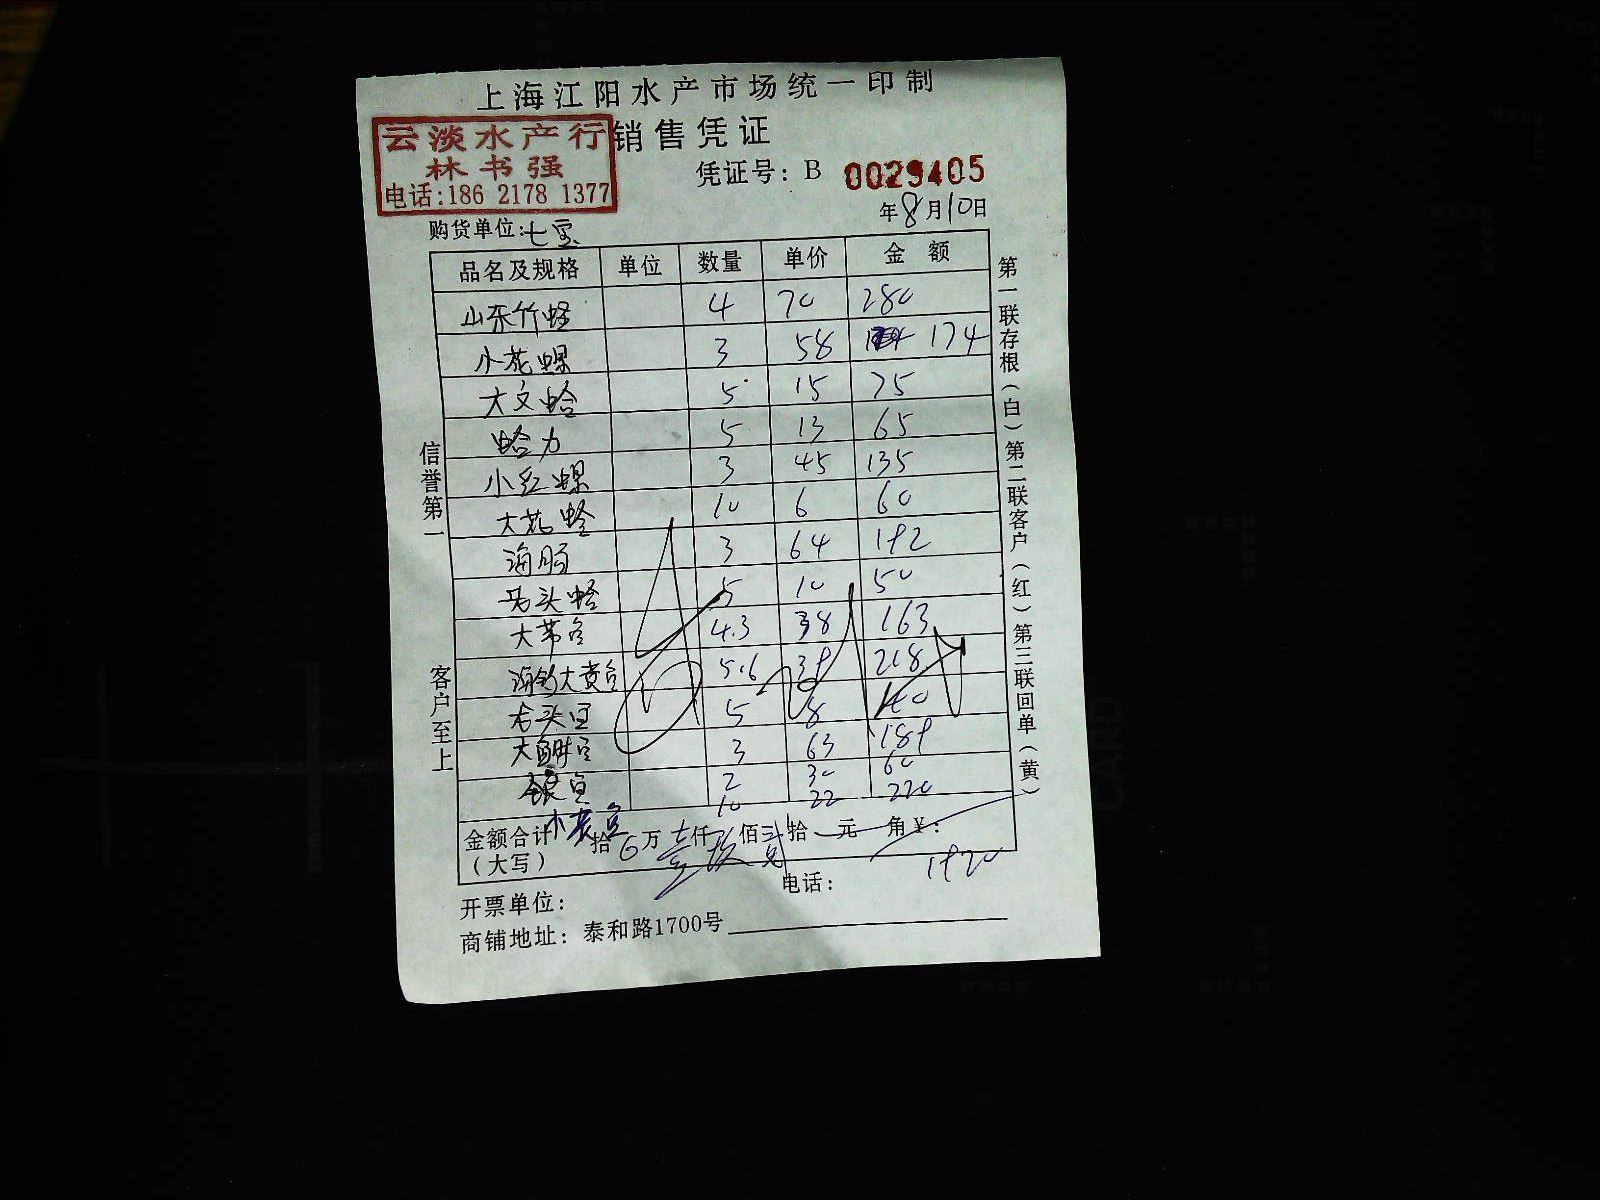 上海江阳水产市场统一印制
销售凭证
云淡水产行
林书强
电话:186 2178 1377
凭证号：B 0029405
年8月10日
购货单位:七宝
品名及规格 单位 数量 单价 金 额
山东竹蛏 4 70 280
小花螺 3 58 174
大文蛤 5 15 75
蛤力 5 13 65
小红螺 3 45 135
大花蛤 10 6 60
海肠 3 64 192
石头蛤 5 10 50
大节鱼 4.3 38 163
海钓大黄鱼 5.6 39 218
5 8 40
3 63 189
2 30 60
10 22 220
金额合计 拾 万壹仟玖佰贰拾 元 角¥：
（大写）
1920
开票单位： 电话：
商铺地址：泰和路1700号
信誉第一
客户至上
第一联存根（白）第二联客户（红）第三联回单（黄）